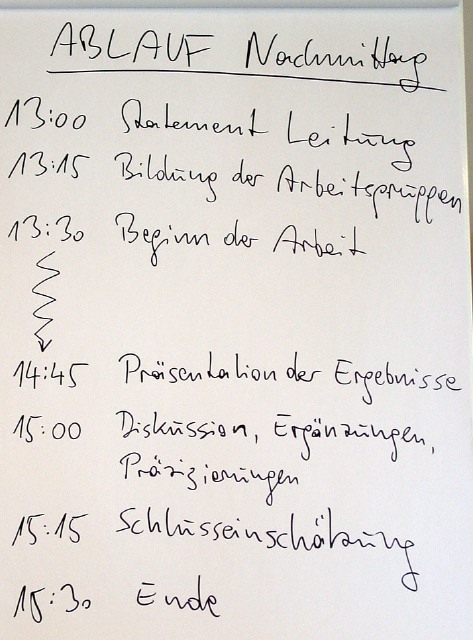 ABLAUF Nachmittag
13:00 Statement Leitung
13:15 Bildung der Arbeitsgruppen
13:30 Beginn der Arbeit
14:45 Präsentation der Ergebnisse
15:00 Diskussion, Ergänzungen,
Präzisierungen
15:15 Schlusseinschätzung
15:30 Ende